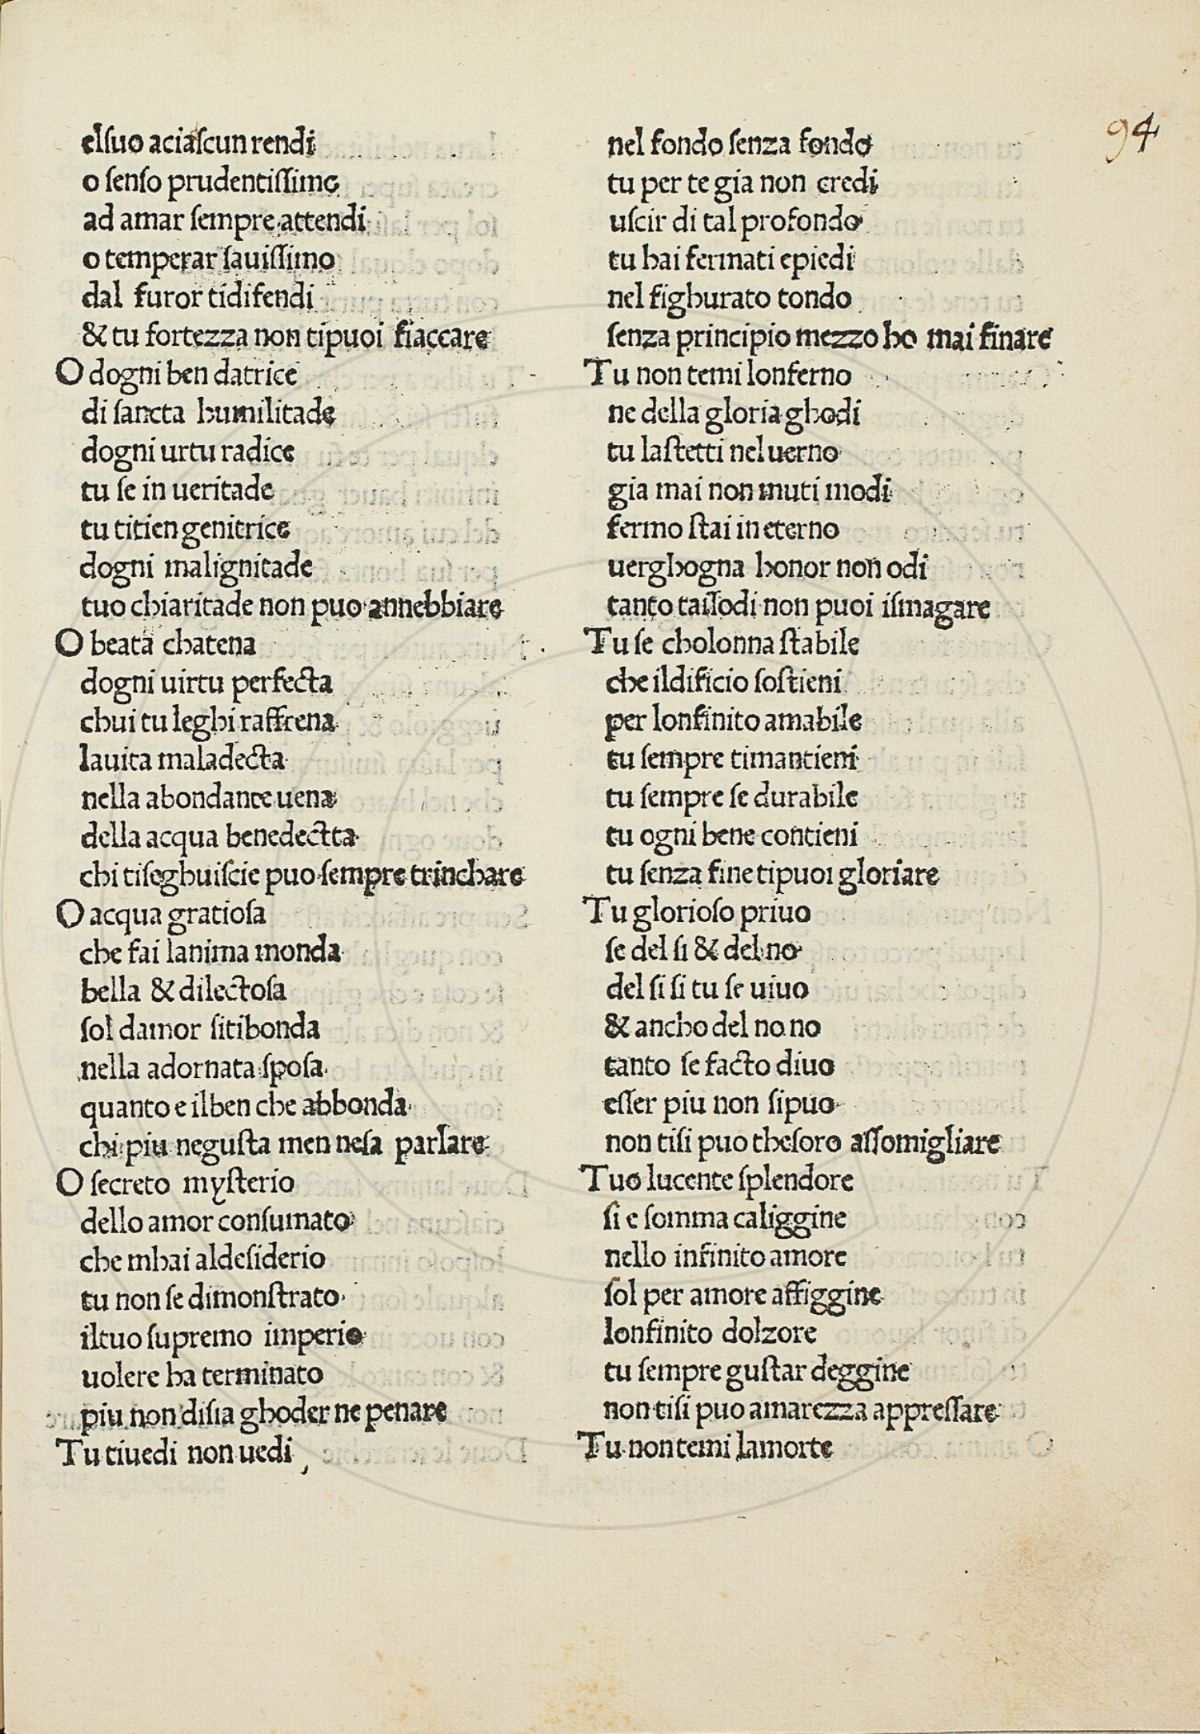 94
elſuo aciaſcun rendi
o ſenſo prudentiſſimo
ad amar ſempre attendi
o temperar ſauiſſimo
dal furor tidifendi
& tu fortezza non tipuoi fiaccare
O dogni ben datrice
di ſancta humilitade
dogni urtu radice
tu ſe in ueritade
tu titien genitrice
dogni malignitade
tuo chiaritade non puo annebbiare
O beata chatena
dogni uirtu perfecta
chui tu leghi raffrena
lauita maladecta
nella abondante uena
della acqua benedectta
chi tiſeghuiſcie puo ſempre trinchare
O acqua gratioſa
che fai lanima monda
bella & dilectoſa
ſol damor ſitibonda
nella adornata ſpoſa
quanto e ilben che abbonda
chi piu neguſta men neſa parlare
O ſecreto myſterio
dello amor conſumato
che mhai aldeſiderio
tu non ſe dimonſtrato
iltuo ſupremo imperio
uolere ha terminato
piu non diſia ghoder ne penare
Tu tiuedi non uedi
nel fondo ſenza fondo
tu per te gia non credi
uſcir di tal profondo
tu hai fermati epiedi
nel fighurato tondo
ſenza principio mezzo ho mai finare
Tu non temi lonferno
ne della gloria ghodi
tu laſtetti nel uerno
gia mai non muti modi
fermo ſtai in eterno
uerghogna honor non odi
tanto tailodi non puoi iſmagare
Tu ſe cholonna ſtabile
che ildificio ſoſtieni
per lonfinito amabile
tu ſempre timantieni
tu ſempre ſe durabile
tu ogni bene contieni
tu ſenza fine tipuoi gloriare
Tu glorioſo priuo
ſe del ſi & del no
del ſi ſi tu ſe uiuo
& ancho del no no
tanto ſe facto diuo
eſſer piu non ſipuo
non tiſi puo theſoro aſſomigliare
Tuo lucente ſplendore
ſi e ſomma caliggine
nello infinito amore
ſol per amore affiggine
lonfinito dolzore
tu ſempre guſtar deggine
non tiſi puo amarezza appreſſare
Tu non temi lamorte